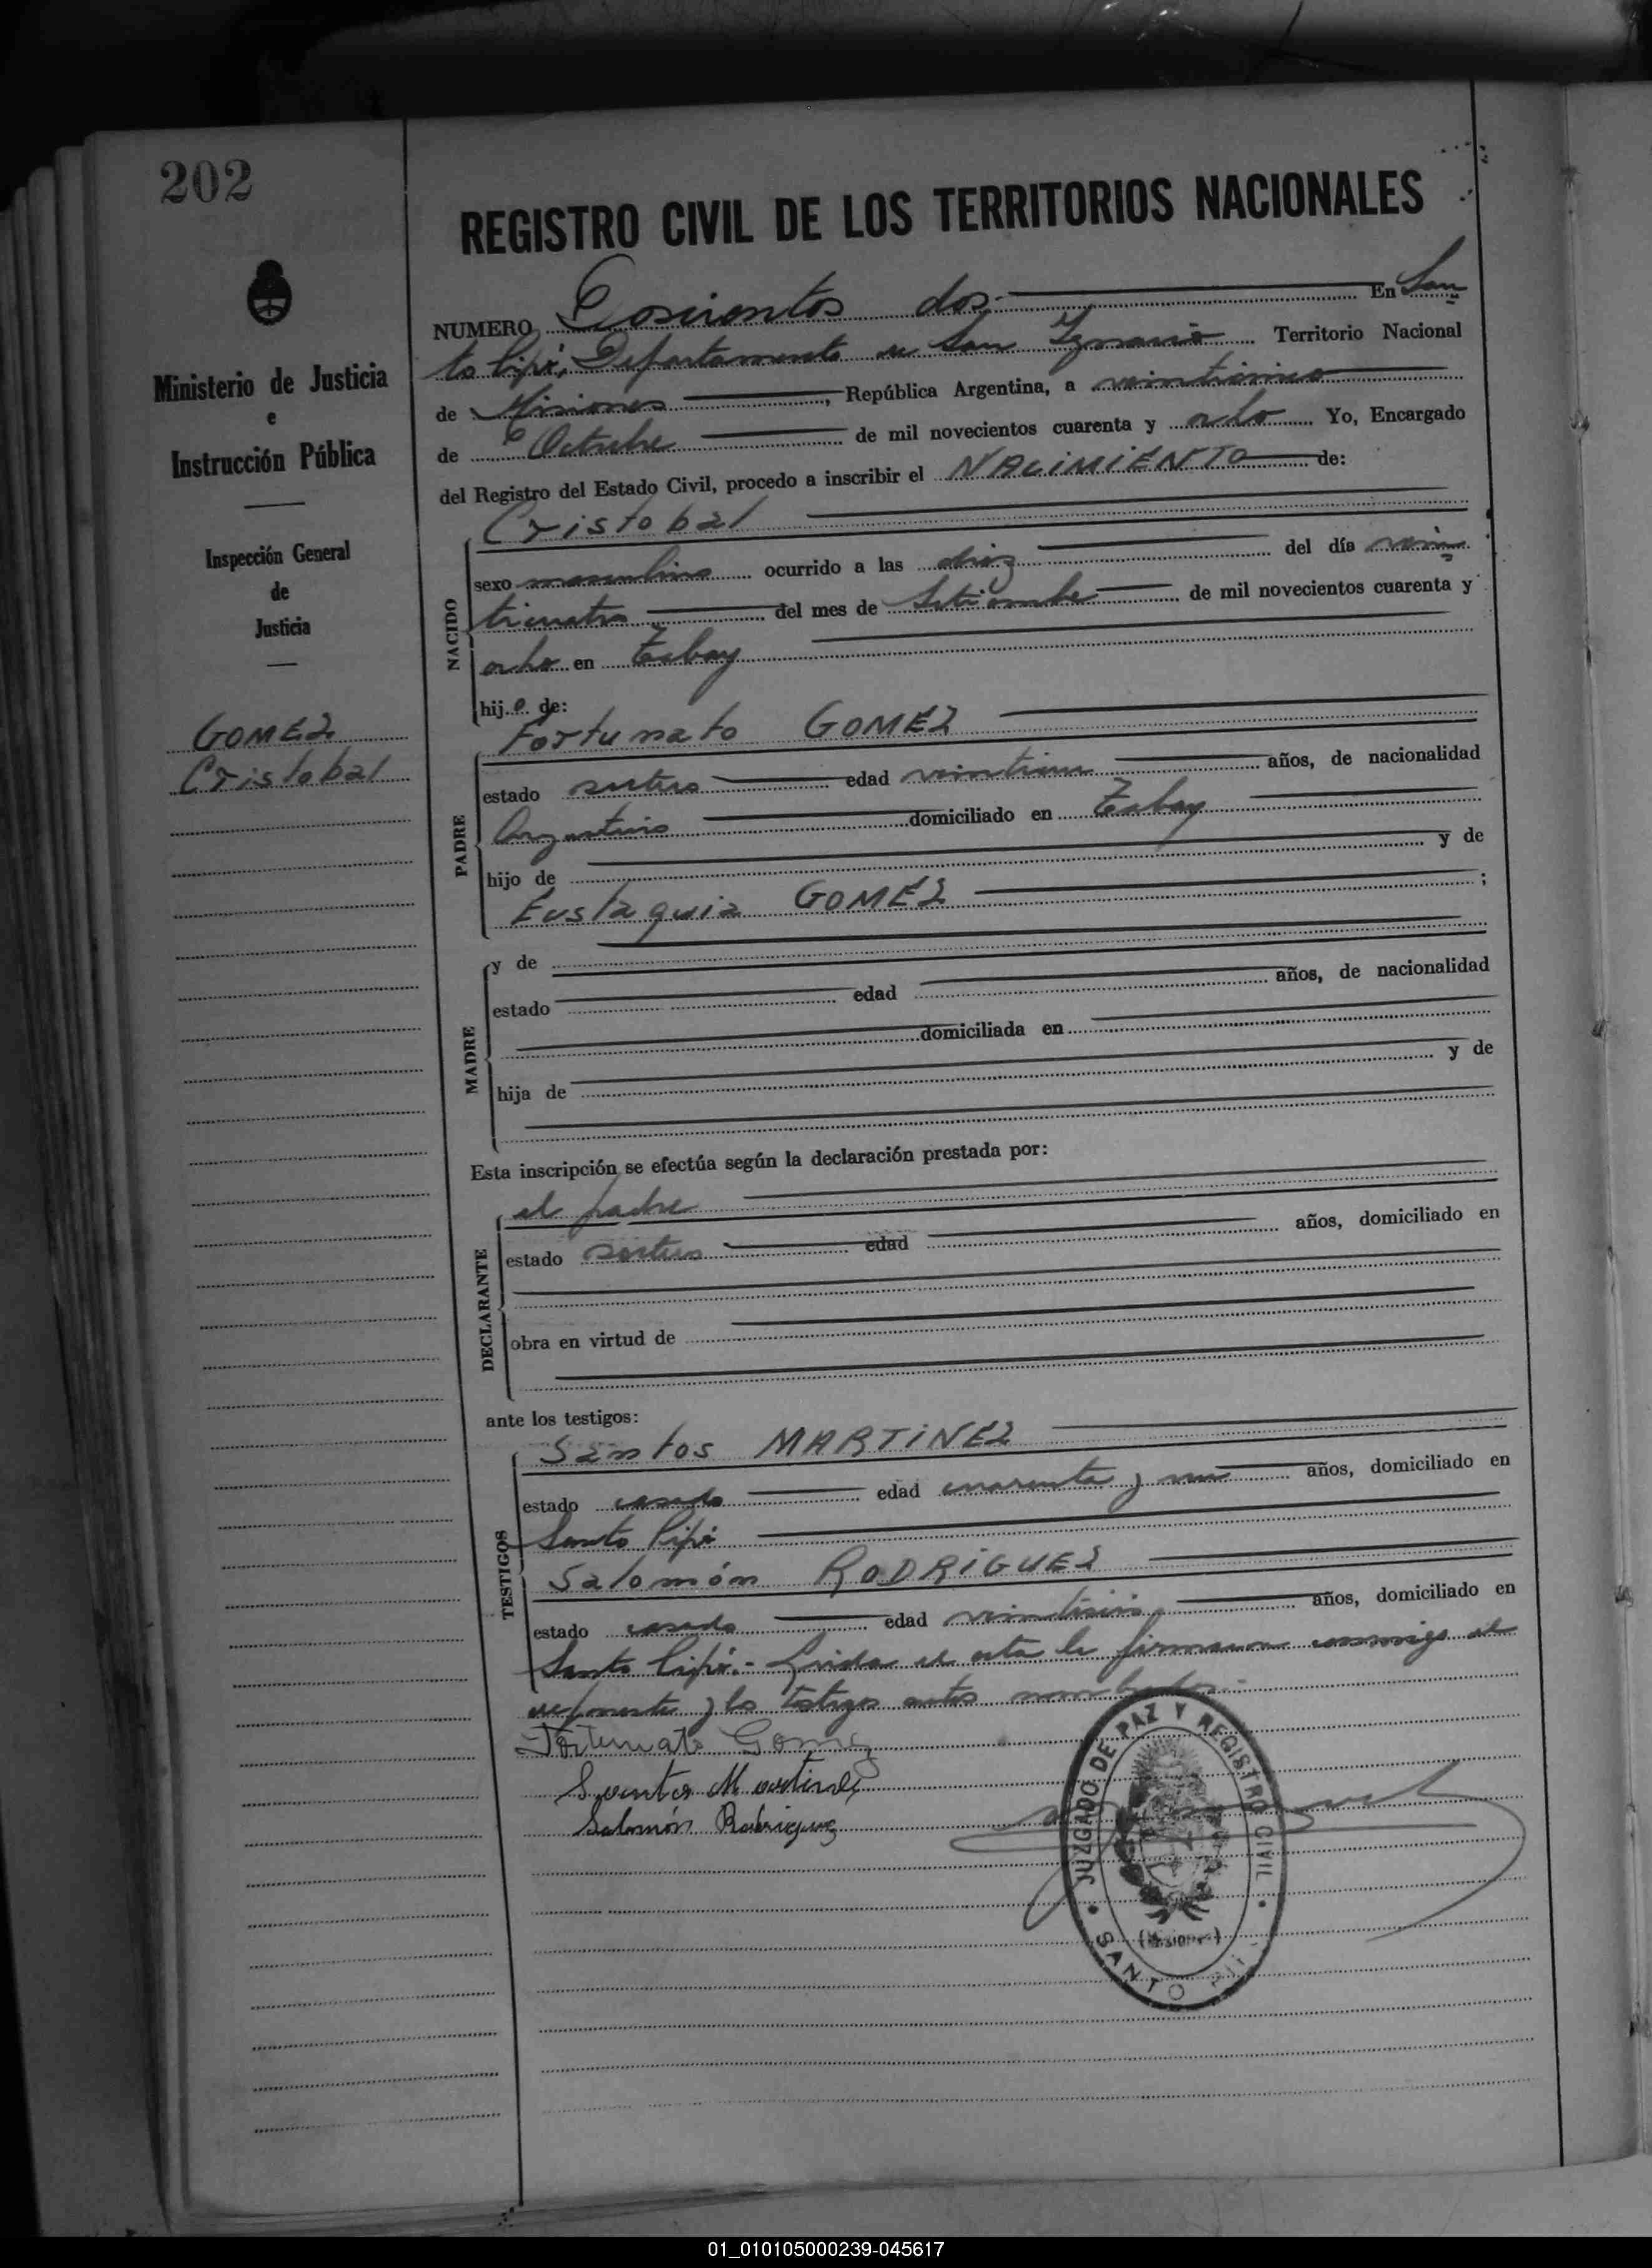 202
REGISTRO CIVIL DE LOS TERRITORIOS NACIONALES
NUMERO Doscientos dos En San
to Pipó, Departamento de San Ignacio Territorio Nacional
de Misiones, República Argentina, a veinticinco
de Octubre de mil novecientos cuarenta y ocho Yo, Encargado
del Registro del Estado Civil, procedo a inscribir el NACIMIENTO de:
Ministerio de Justicia
e
Instrucción Pública
Inspección General
de
Justicia
GOMEZ
Cristobal
NACIDO
Cristobal
sexo masculino ocurrido a las diez del día vein
ticuatro del mes de Setiembre de mil novecientos cuarenta y
ocho en
hijo de:
PADRE
Fortunato GOMEZ
estado soltero edad años, de nacionalidad
Argentino domiciliado en
hijo de y de
Eustaquia GOMEZ ;
MADRE
y de
estado edad años, de nacionalidad
domiciliada en
hija de y de
Esta inscripción se efectúa según la declaración prestada por:
DECLARANTE
el padre
estado soltero edad años, domiciliado en
obra en virtud de
ante los testigos:
TESTIGOS
Santos MARTINEZ
estado casado edad cuarenta y un años, domiciliado en
Santo Pipó
Salomón RODRIGUEZ
estado casado edad años, domiciliado en
Santo Pipó.- Leída el acta la firmaron conmigo el
deponente y los testigos antes nombrados.-
Fortunato Gomez
Santos Martinez
Salomón Rodriguez
JUZGADO DE PAZ Y REGISTRO CIVIL
(Misiones)
SANTO PIPO
01_010105000239-045617